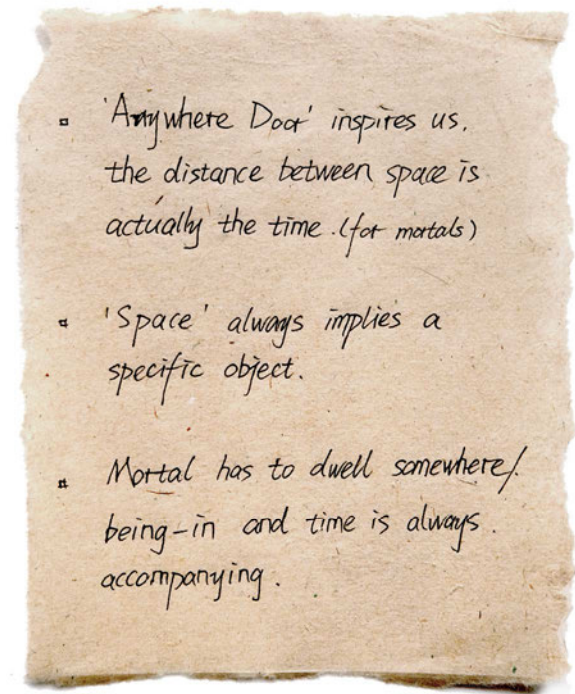 'Anywhere Door' inspires us.
the distance between space is
actually the time. (for mortals)
'Space' always implies a
specific object.
Mortal has to dwell somewhere/.
being-in and time is always.
accompanying.